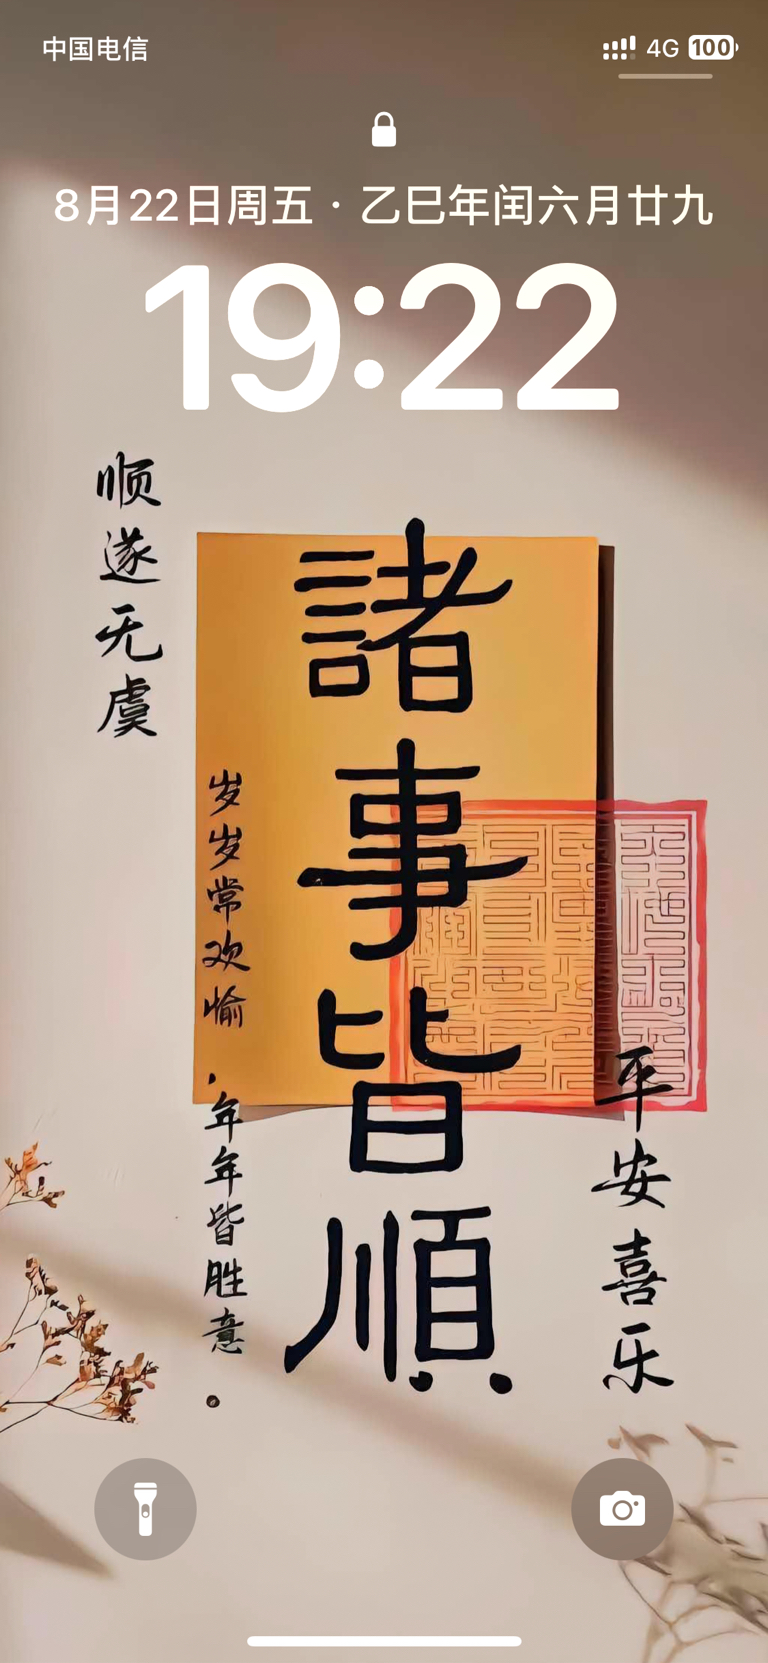 中国电信
4G 100
8月22日周五 · 乙巳年闰六月廿九
19:22
顺遂无虞
諸事皆順
岁岁常欢愉，年年皆胜意。
平安喜乐